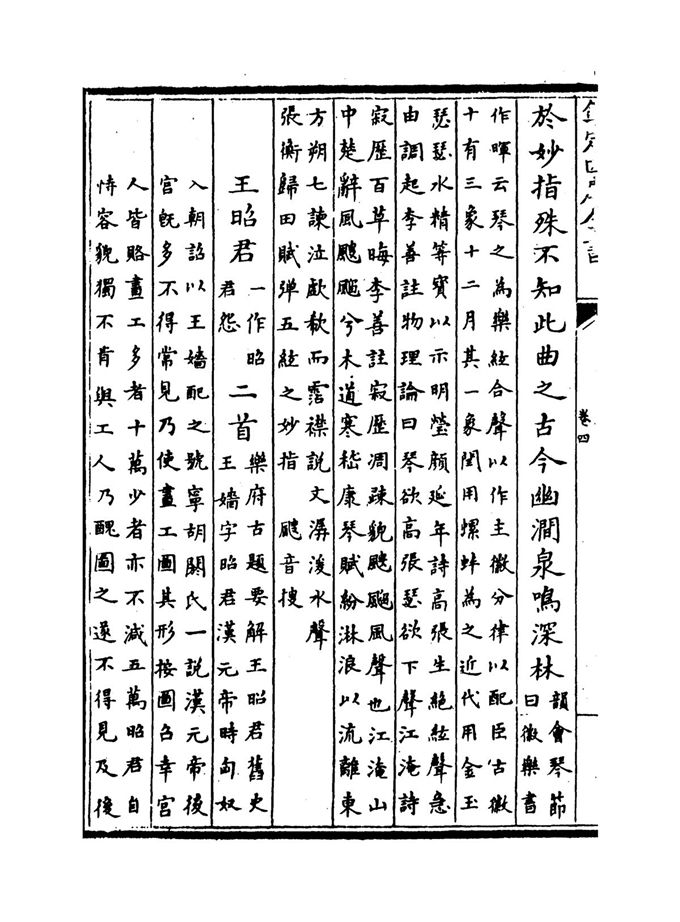 欽定四庫全書
卷四
於妙指殊不知此曲之古今幽澗泉鳴深林韻會琴節
曰徽樂書
作暉云琴之為樂絃合聲以作主徽分律以配臣古徽
十有三象十二月其一象閏用螺蚌為之近代用金玉
瑟瑟水精等寶以示明瑩顔延年詩高張生絶絃聲急
由調起李善註物理論曰琴欲高張瑟欲下聲江淹詩
寂歷百草晦李善註寂歷凋疎貌颼飀風聲也江淹山
中楚辭風颼飀兮木道寒嵇康琴賦紛淋浪以流離東
方朔七諫泣歔欷而霑襟說文潺湲水聲
張衡歸田賦弹五絃之妙指 颼音搜
王昭君一作昭君怨二首樂府古題要解王昭君舊史
王嬙字昭君漢元帝時匈奴
入朝詔以王嬙配之號寧胡閼氏一說漢元帝後
宮旣多不得常見乃使畫工圖其形按圖召幸宮
人皆賂畫工多者十萬少者亦不減五萬昭君自
恃容貌獨不肯與工人乃醜圖之遂不得見及後